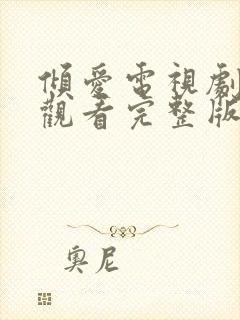 傾愛電視劇
觀看完整版
奧尼